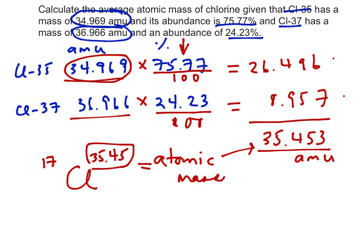 Calculate the average atomic mass of chlorine given that Cl-35 has a
mass of 34.969 amu and its abundance is 75.77% and Cl-37 has a
mass of 36.966 amu and an abundance of 24.23%.
amu %
Cl-35 34.969 × 75.77/100 = 26.496
Cl-37 36.966 × 24.23/100 = 8.957
35.453
amu
17 Cl 35.45 = atomic
mass